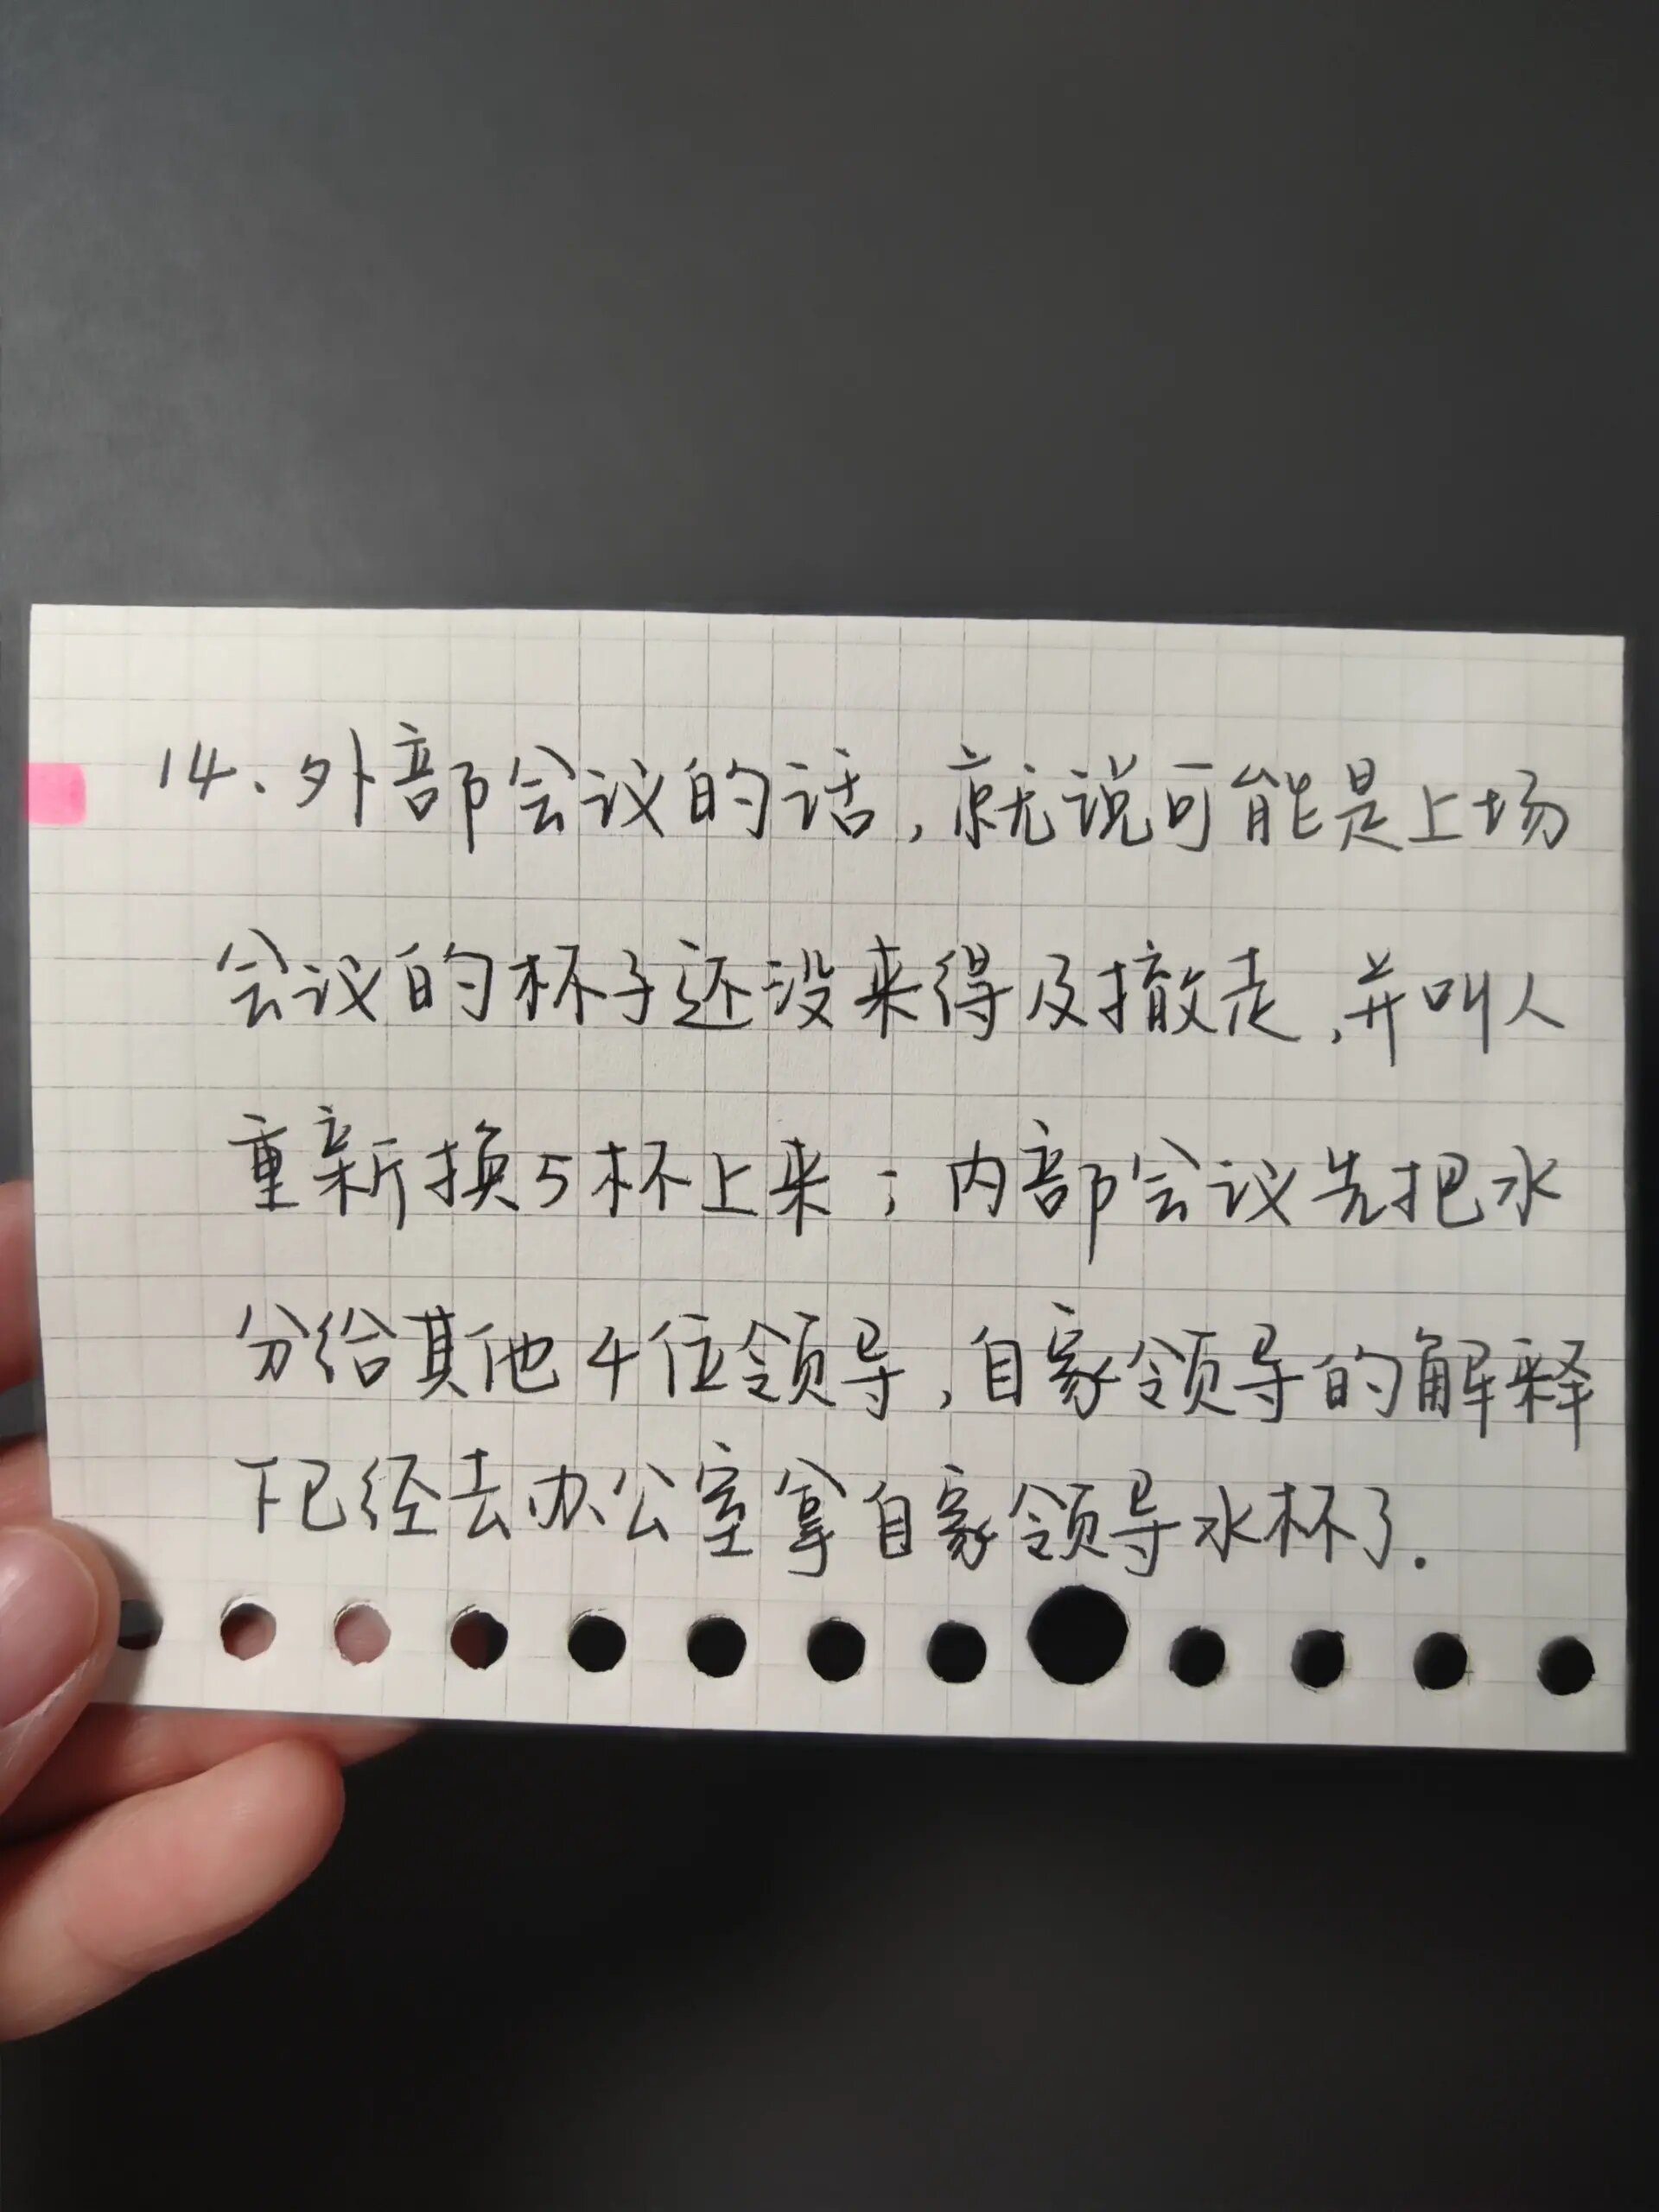 14、外部会议的话,就说可能是上场
会议的杯子还没来得及撤走,并叫人
重新换5杯上来;内部会议先把水
分给其他4位领导,自家领导的解释
下已经去办公室拿自家领导水杯了.